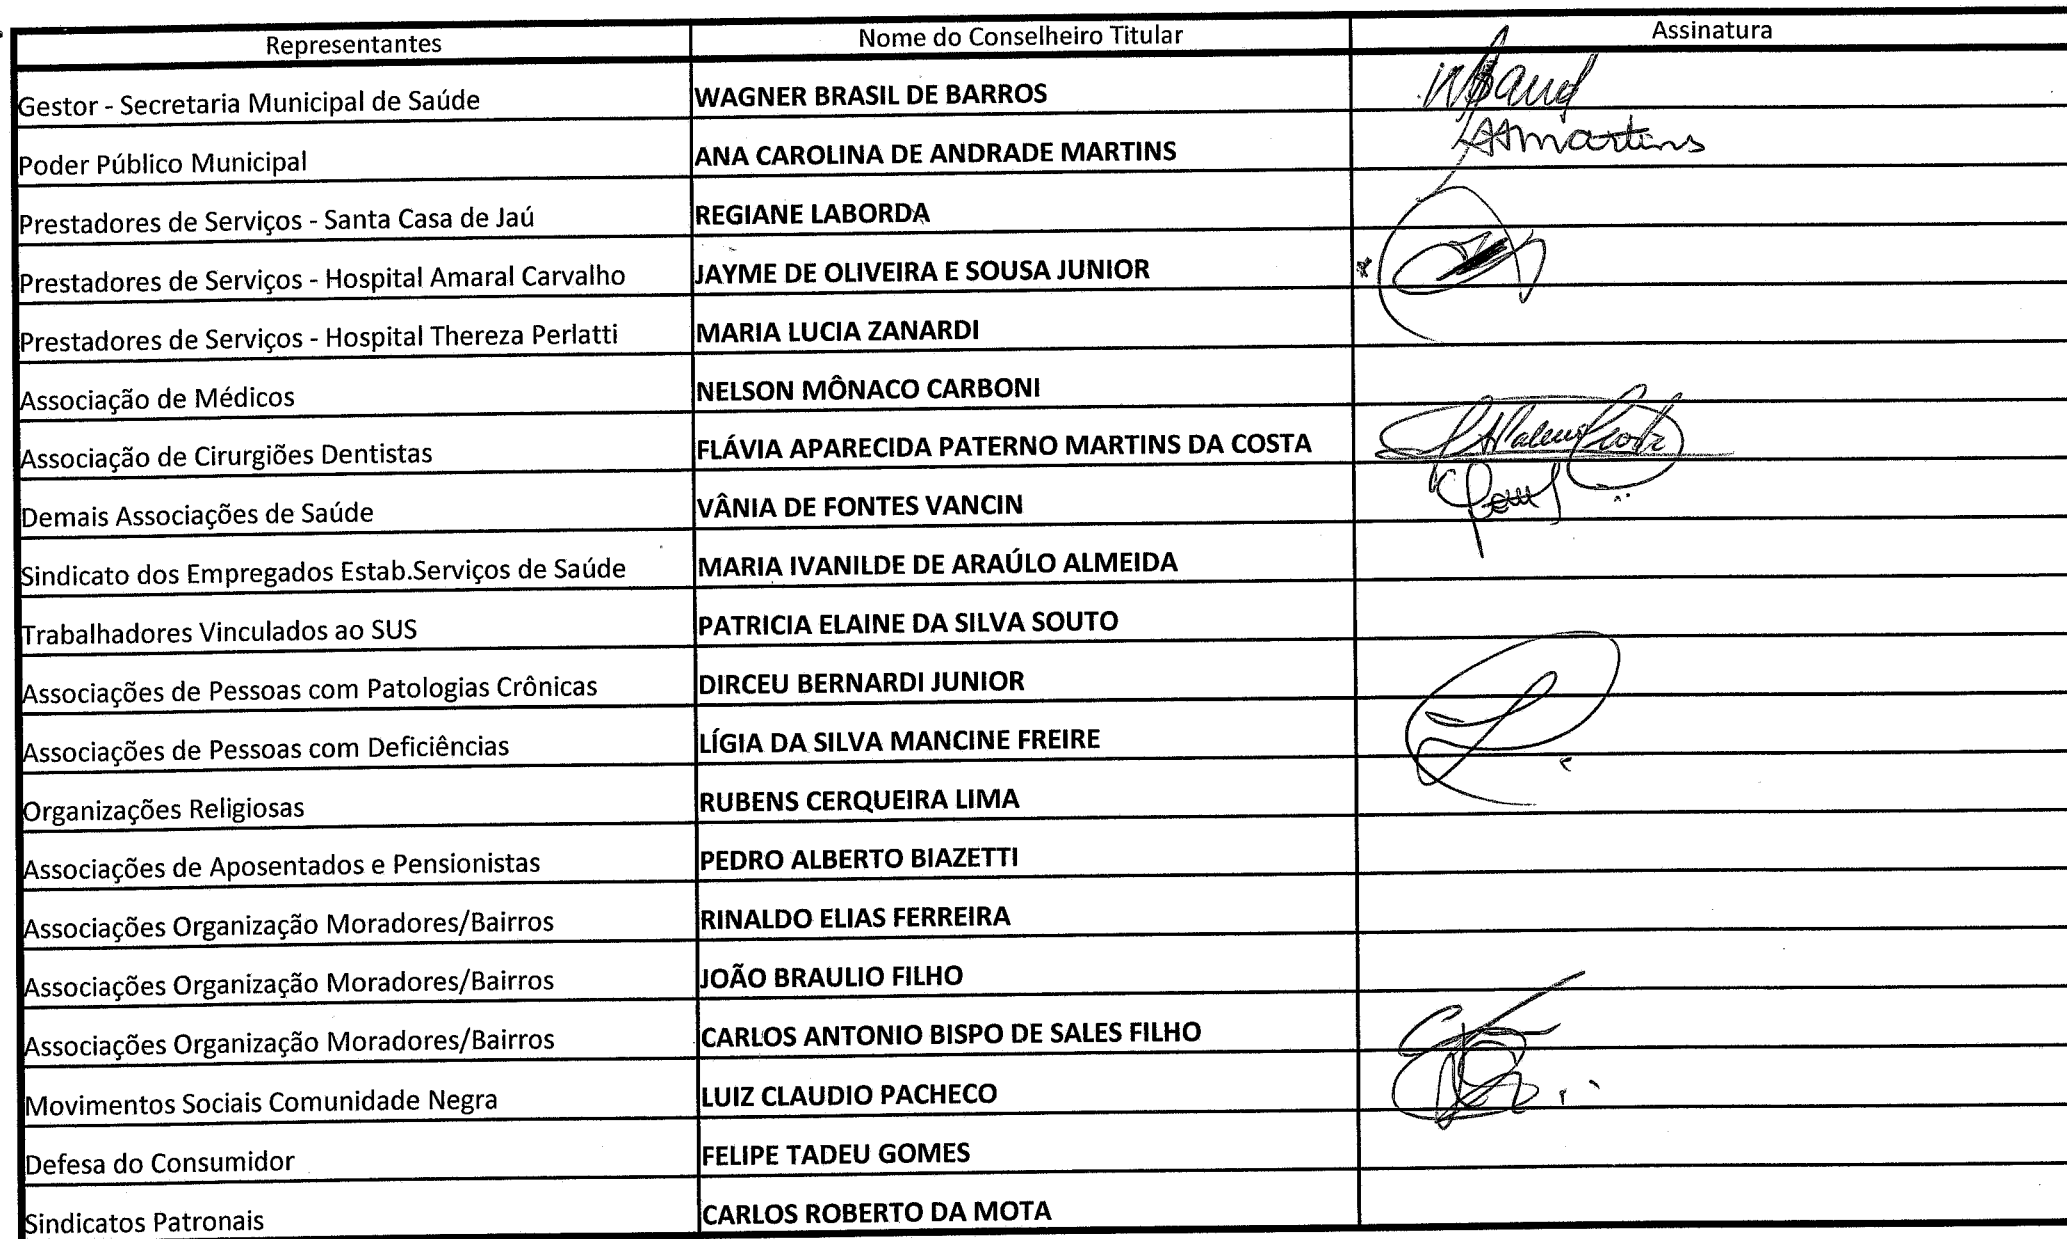 Representantes Nome do Conselheiro Titular Assinatura
Gestor - Secretaria Municipal de Saúde WAGNER BRASIL DE BARROS
Poder Público Municipal ANA CAROLINA DE ANDRADE MARTINS AAmartins
Prestadores de Serviços - Santa Casa de Jaú REGIANE LABORDA
Prestadores de Serviços - Hospital Amaral Carvalho JAYME DE OLIVEIRA E SOUSA JUNIOR
Prestadores de Serviços - Hospital Thereza Perlatti MARIA LUCIA ZANARDI
Associação de Médicos NELSON MÔNACO CARBONI
Associação de Cirurgiões Dentistas FLÁVIA APARECIDA PATERNO MARTINS DA COSTA
Demais Associações de Saúde VÂNIA DE FONTES VANCIN
Sindicato dos Empregados Estab.Serviços de Saúde MARIA IVANILDE DE ARAÚLO ALMEIDA
Trabalhadores Vinculados ao SUS PATRICIA ELAINE DA SILVA SOUTO
Associações de Pessoas com Patologias Crônicas DIRCEU BERNARDI JUNIOR
Associações de Pessoas com Deficiências LÍGIA DA SILVA MANCINE FREIRE
Organizações Religiosas RUBENS CERQUEIRA LIMA
Associações de Aposentados e Pensionistas PEDRO ALBERTO BIAZETTI
Associações Organização Moradores/Bairros RINALDO ELIAS FERREIRA
Associações Organização Moradores/Bairros JOÃO BRAULIO FILHO
Associações Organização Moradores/Bairros CARLOS ANTONIO BISPO DE SALES FILHO
Movimentos Sociais Comunidade Negra LUIZ CLAUDIO PACHECO
Defesa do Consumidor FELIPE TADEU GOMES
Sindicatos Patronais CARLOS ROBERTO DA MOTA